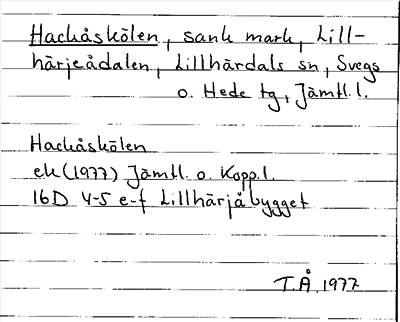 Hackåskölen, sank mark, Lill-
härjeådalen, Lillhärdals sn, Svegs
o. Hede tg, Jämtl. l.
Hackåskölen
ek (1977) Jämtl. o. Kopp. l.
16D 4-5 e-f Lillhärjåbygget
T.Å. 1977